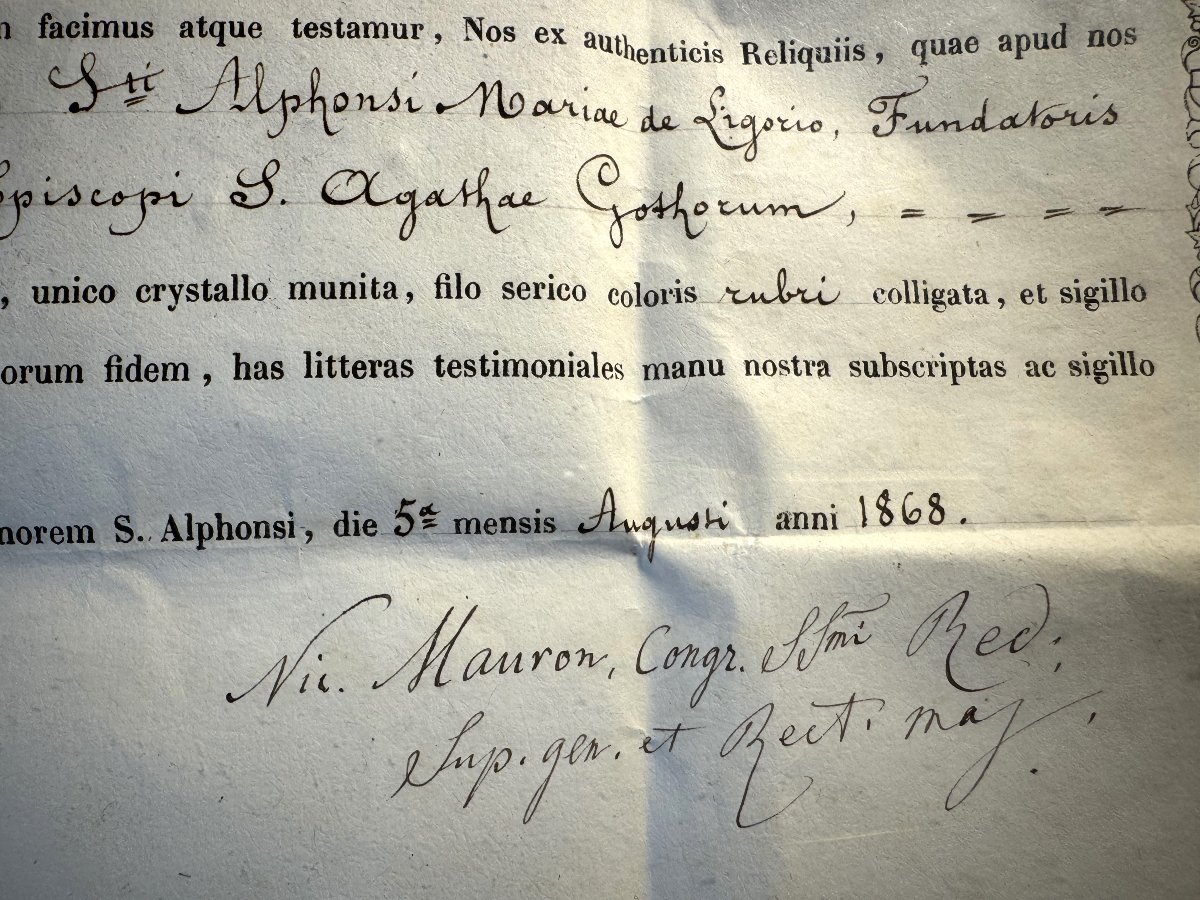 facimus atque testamur, Nos ex authenticis Reliquiis, quae apud nos
Sti Alphonsi Mariae de Ligorio, Fundatoris
Episcopi S. Agathae Gothorum, = = = =
, unico crystallo munita, filo serico coloris rubri colligata, et sigillo
orum fidem, has litteras testimoniales manu nostra subscriptas ac sigillo
norem S. Alphonsi, die 5a mensis Augusti anni 1868.
Nic. Mauron, Congr. SSmi Red.
Sup. gen. et Rect. maj.